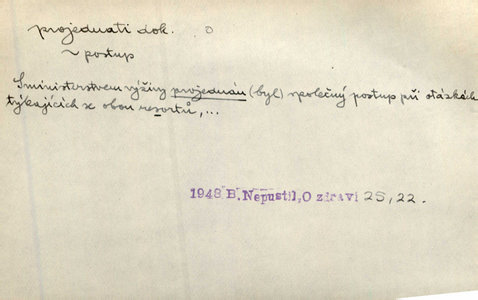 projednati dok. o
~ postup
S ministerstvem výživy projednán (byl) společný postup při otázkách
týkajících se obou resortů,...
1948 B. Nepustil, O zdraví 25, 22.